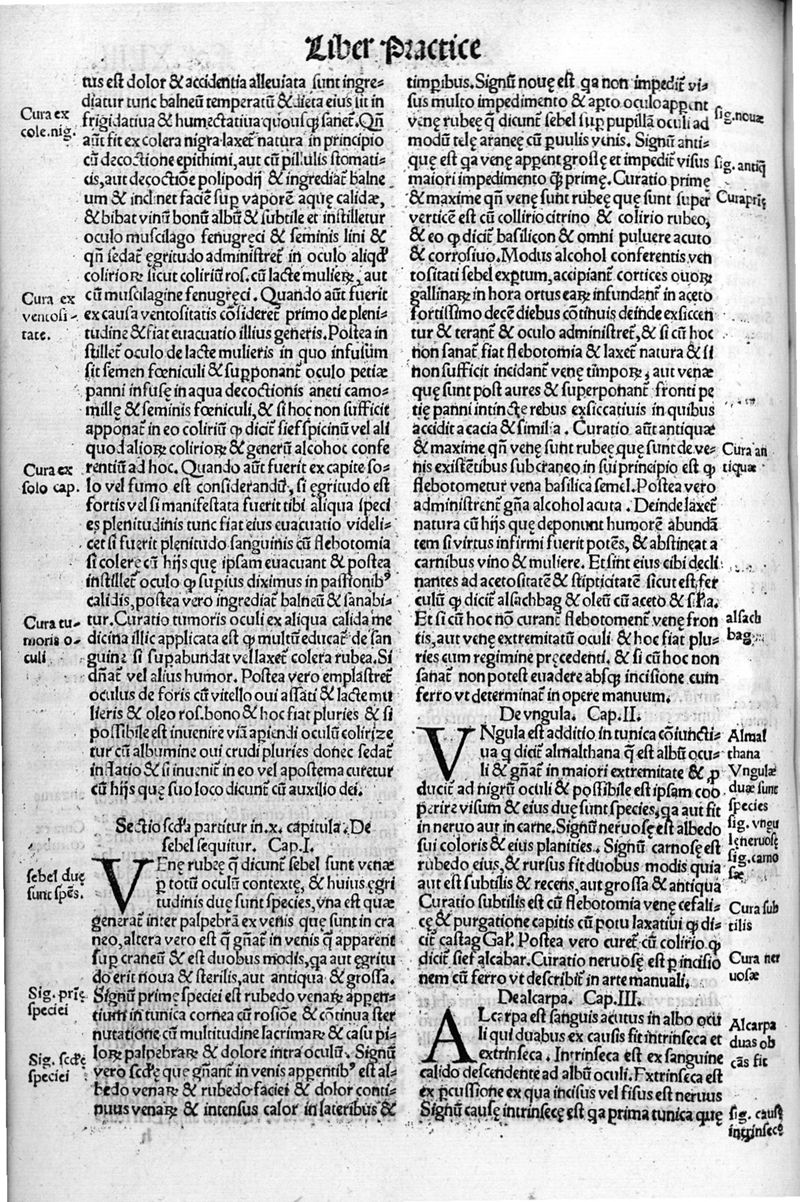 Liber Practice
tus est dolor & accidentia alleuiata sunt ingre-
diatur tunc balneū temperatū & dieta eius sit in
frigidatiua & humectatiua quousq; sanet̄. Qn̄
aūt fit ex colera nigra laxet̄ natura in principio
cū decoctione epithimi, aut cū pillulis stomati-
cis, aut decoctiōe polipodij & ingrediat̄ balne
um & inclinet faciē sup vaporē aquę calidæ,
& bibat vinū bonū albū & subtile et instilletur
oculo muscilago fenugręci & seminis lini &
qn̄ sedat̄ ęgritudo administret̄ in oculo aliqd̓
colirioꝝ sicut coliriū ros. cū lacte mulieꝝ, aut
cū muscilagine fenugręci. Quando aūt fuerit
ex causa ventositatis cōsideret̄ primo de pleni-
tudine & fiat euacuatio illius generis. Postea in
stillet̄ oculo de lacte mulieris in quo infusum
sit semen fœniculi & supponant̄ oculo petiæ
panni infusę in aqua decoctionis aneti camo-
millę & seminis fœniculi, & si hoc non sufficit
apponat̄ in eo coliriū ꝙ dicit̄ sief spicinū vel ali
quod alioꝝ colirioꝝ & generū alcohoc confe
rentiū ad hoc. Quando aūt fuerit ex capite so-
lo vel fumo est considerandū, si ęgritudo est
fortis vel si manifestata fuerit tibi aliqua speci
es plenitudinis tunc fiat eius euacuatio videli-
cet si fuerit plenitudo sanguinis cū flebotomia
si colerę cū hijs quę ipsam euacuant & postea
instillet̄ oculo ꝙ supius diximus in passionib⁹
calidis, postea vero ingrediat̄ balneū & sanabi-
tur. Curatio tumoris oculi ex aliqua calida me
dicina illic applicata est ꝙ multū educat̄ de san
guine si supabundat vel laxet̄ colera rubea. Si
dn̄at̄ vel alius humor. Postea vero emplastret̄
oculus de foris cū vitello oui assati & lacte mu
lieris & oleo ros. bono & hoc fiat pluries & si
possibile est inuenire viā apiendi oculū colirize
tur cū albumine oui crudi pluries donec sedat̄
inflatio & si inuenit̄ in eo vel apostema curetur
cū hijs quę suo loco dicunt̄ cū auxilio dei.
Sectio scd̓a partitur in.x. capitula. De
sebel sequitur. Cap.I.
VEnę rubeę q̄ dicunt̄ sebel sunt venæ
p totū oculū contextę, & huius ęgri
tudinis duę sunt species, vna est quæ
generat̄ inter palpebrā ex venis quę sunt in cra
neo, altera vero est q̄ gn̄at̄ in venis q̄ apparent
sup craneū & est duobus modis, qa aut ęgritu
do erit noua & sterilis, aut antiqua & grossa.
Signū primę speciei est rubedo venaꝝ apparen-
tium in tunica cornea cū rosiōe & cōtinua ster
nutatione cū multitudine lacrimaꝝ & casu pi-
loꝝ palpebraꝝ & dolore intra oculū. Signū
vero scd̓ę quę gn̄ant̄ in venis apparentib⁹ est al-
bedo venaꝝ & rubedo faciei & dolor conti-
nuus venaꝝ & intensus calor in lateribus &
Cura ex
cole. nig.
Cura ex
ventosi-
tate.
Cura ex
solo cap.
Cura tu-
moris o-
culi
sebel duę
sunt spēs.
Sig. prię
speciei
Sig. scd̓ę
speciei
timpibus. Signū nouę est qa non impedit̄ vi-
sus multo impedimento & apto oculo apparent
venę rubeę q̄ dicunt̄ sebel sup pupillā oculi ad
modū telę araneę cū paruulis venis. Signū anti-
quę est qa venę apparent grossę et impedit̄ visus
maiori impedimento q̄ primę. Curatio primę
& maxime qn̄ venę sunt rubeę quę sunt super
verticē est cū collirio citrino & colirio rubeo,
& eo ꝙ dicit̄ basilicon & omni puluere acuto
& corrosiuo. Modus alcohol conferentis ven
tositati sebel exptum, accipiant̄ cortices ouoꝝ
gallinaꝝ in hora ortus eaꝝ infundant̄ in aceto
fortissimo decē diebus cōtinuis deinde exsiccen
tur & terant̄ & oculo administret̄, & si cū hoc
non sanat̄ fiat flebotomia & laxet̄ natura & si
non sufficit incidant̄ venę tīmpoꝝ, aut venæ
quę sunt post aures & superponant̄ fronti pe
tię panni intinctę rebus exsiccatiuis in quibus
accidit acacia & similia. Curatio aūt antiquæ
& maxime qn̄ venę sunt rubeę quę sunt de ve-
nis existētibus sub craneo in sui principio est ꝙ
flebotometur vena basilica semel. Postea vero
administrent̄ gn̄a alcohol acuta. Deinde laxet̄
natura cū hijs quę deponunt humorē abundā
tem si virtus infirmi fuerit potēs, & abstineat a
carnibus vino & muliere. Et sint eius cibi decli
nantes ad acetositatē & stipticitatē sicut est fer
culū ꝙ dicit̄ alsachbag & oleū cū aceto & s̄ilia.
Et si cū hoc nō curant̄ flebotoment̄ venę fron
tis, aut venę extremitatū oculi & hoc fiat plu-
ries cum regimine pręcedenti. & si cū hoc non
sanat̄ non potest euadere absq; incisione cum
ferro vt determinat̄ in opere manuum.
De vngula. Cap.II.
VNgula est additio in tunica cōiuncti-
ua q̄ dicit̄ almalthana q̄ est albū ocu-
li & gn̄at̄ in maiori extremitate & p
ducit̄ ad nigrū oculi & possibile est ipsam coo
perire visum & eius duę sunt species, qa aut fit
in neruo aut in carne. Signū neruosę est albedo
sui coloris & eius planities. Signū carnosę est
rubedo eius, & rursus fit duobus modis quia
aut est subtilis & recens, aut grossa & antiqua
Curatio subtilis est cū flebotomia venę cefali-
cę & purgatione capitis cū potu laxatiui ꝙ di-
cit̄ castag Gal̓. Postea vero curet̄ cū colirio ꝙ
dicit̄ sief alcabar. Curatio neruosę est p incisio
nem cū ferro vt describit̄ in arte manuali.
De alcarpa. Cap.III.
ALcarpa est sanguis acutus in albo ocu
li qui duabus ex causis fit intrinseca et
extrinseca. Intrinseca est ex sanguine
calido descendente ad albū oculi. Extrinseca est
ex pcussione ex qua incisus vel fisus est neruus
Signū causę intrinsecę est qa prima tunica quę
sig. nouæ
sig. antiq̄
Cura prię
Cura an
tiquæ
alsach
bag.
Almal
thana
Vngulæ
duæ sunt
species
sig. vngu
lę neruosę
sig. carno
sæ
Cura sub
tilis
Cura ner
uosæ
Alcarpa
duas ob
cās fit
sig. causę
intrinsecę
h